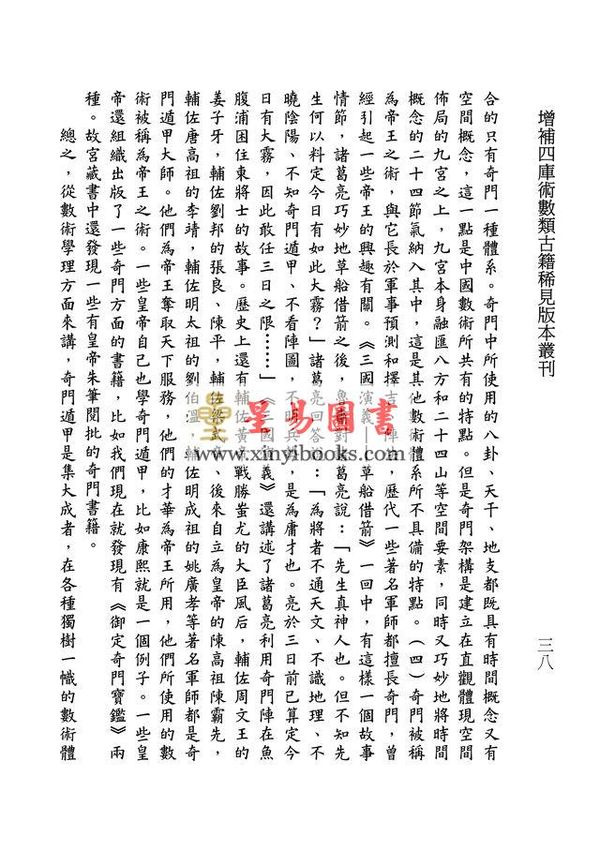 增補四庫術數類古籍稀見版本叢刊
三八
合的只有奇門一種體系。奇門中所使用的八卦、天干、地支都既具有時間概念又有
空間概念，這一點是中國數術所共有的特點。但是奇門架構是建立在直觀體現空間
佈局的九宮之上，九宮本身融匯八方和二十四山等空間要素，同時又巧妙地將時間
概念的二十四節氣納入其中，這是其他數術體系所不具備的特點。（四）奇門被稱
為帝王之術，與它長於軍事預測和擇吉 陣 ，歷代一些著名軍師都擅長奇門，曾
經引起一些帝王的興趣有關。《三國演義——草船借箭》一回中，有這樣一個故事
情節，諸葛亮巧妙地草船借箭之後，魯肅對 葛亮說：「先生真神人也。但不知先
生何以料定今日有如此大霧？」諸葛亮回答 ：「為將者不通天文、不識地理、不
曉陰陽、不知奇門遁甲、不看陣圖，不明兵 ，是為庸才也。亮於三日前已算定今
日有大霧，因此敢任三日之限……」《三國 義》還講述了諸葛亮利用奇門陣在魚
腹浦困住東將士的故事。歷史上還有輔佐黃 戰勝蚩尤的大臣風后，輔佐周文王的
姜子牙，輔佐劉邦的張良、陳平，輔佐梁武 、後來自立為皇帝的陳高祖陳霸先，
輔佐唐高祖的李靖，輔佐明太祖的劉伯溫，輔佐明成祖的姚廣孝等著名軍師都是奇
門遁甲大師。他們為帝王奪取天下服務，他們的才華為帝王所用，他們所使用的數
術被稱為帝王之術。一些皇帝自己也學奇門遁甲，比如康熙就是一個例子。一些皇
帝還組織出版了一些奇門方面的書籍，比如我們現在就發現有《御定奇門寶鑑》兩
種。故宮藏書中還發現一些有皇帝朱筆閱批的奇門書籍。
總之，從數術學理方面來講，奇門遁甲是集大成者，在各種獨樹一幟的數術體
星易圖書
www.xinyibooks.com